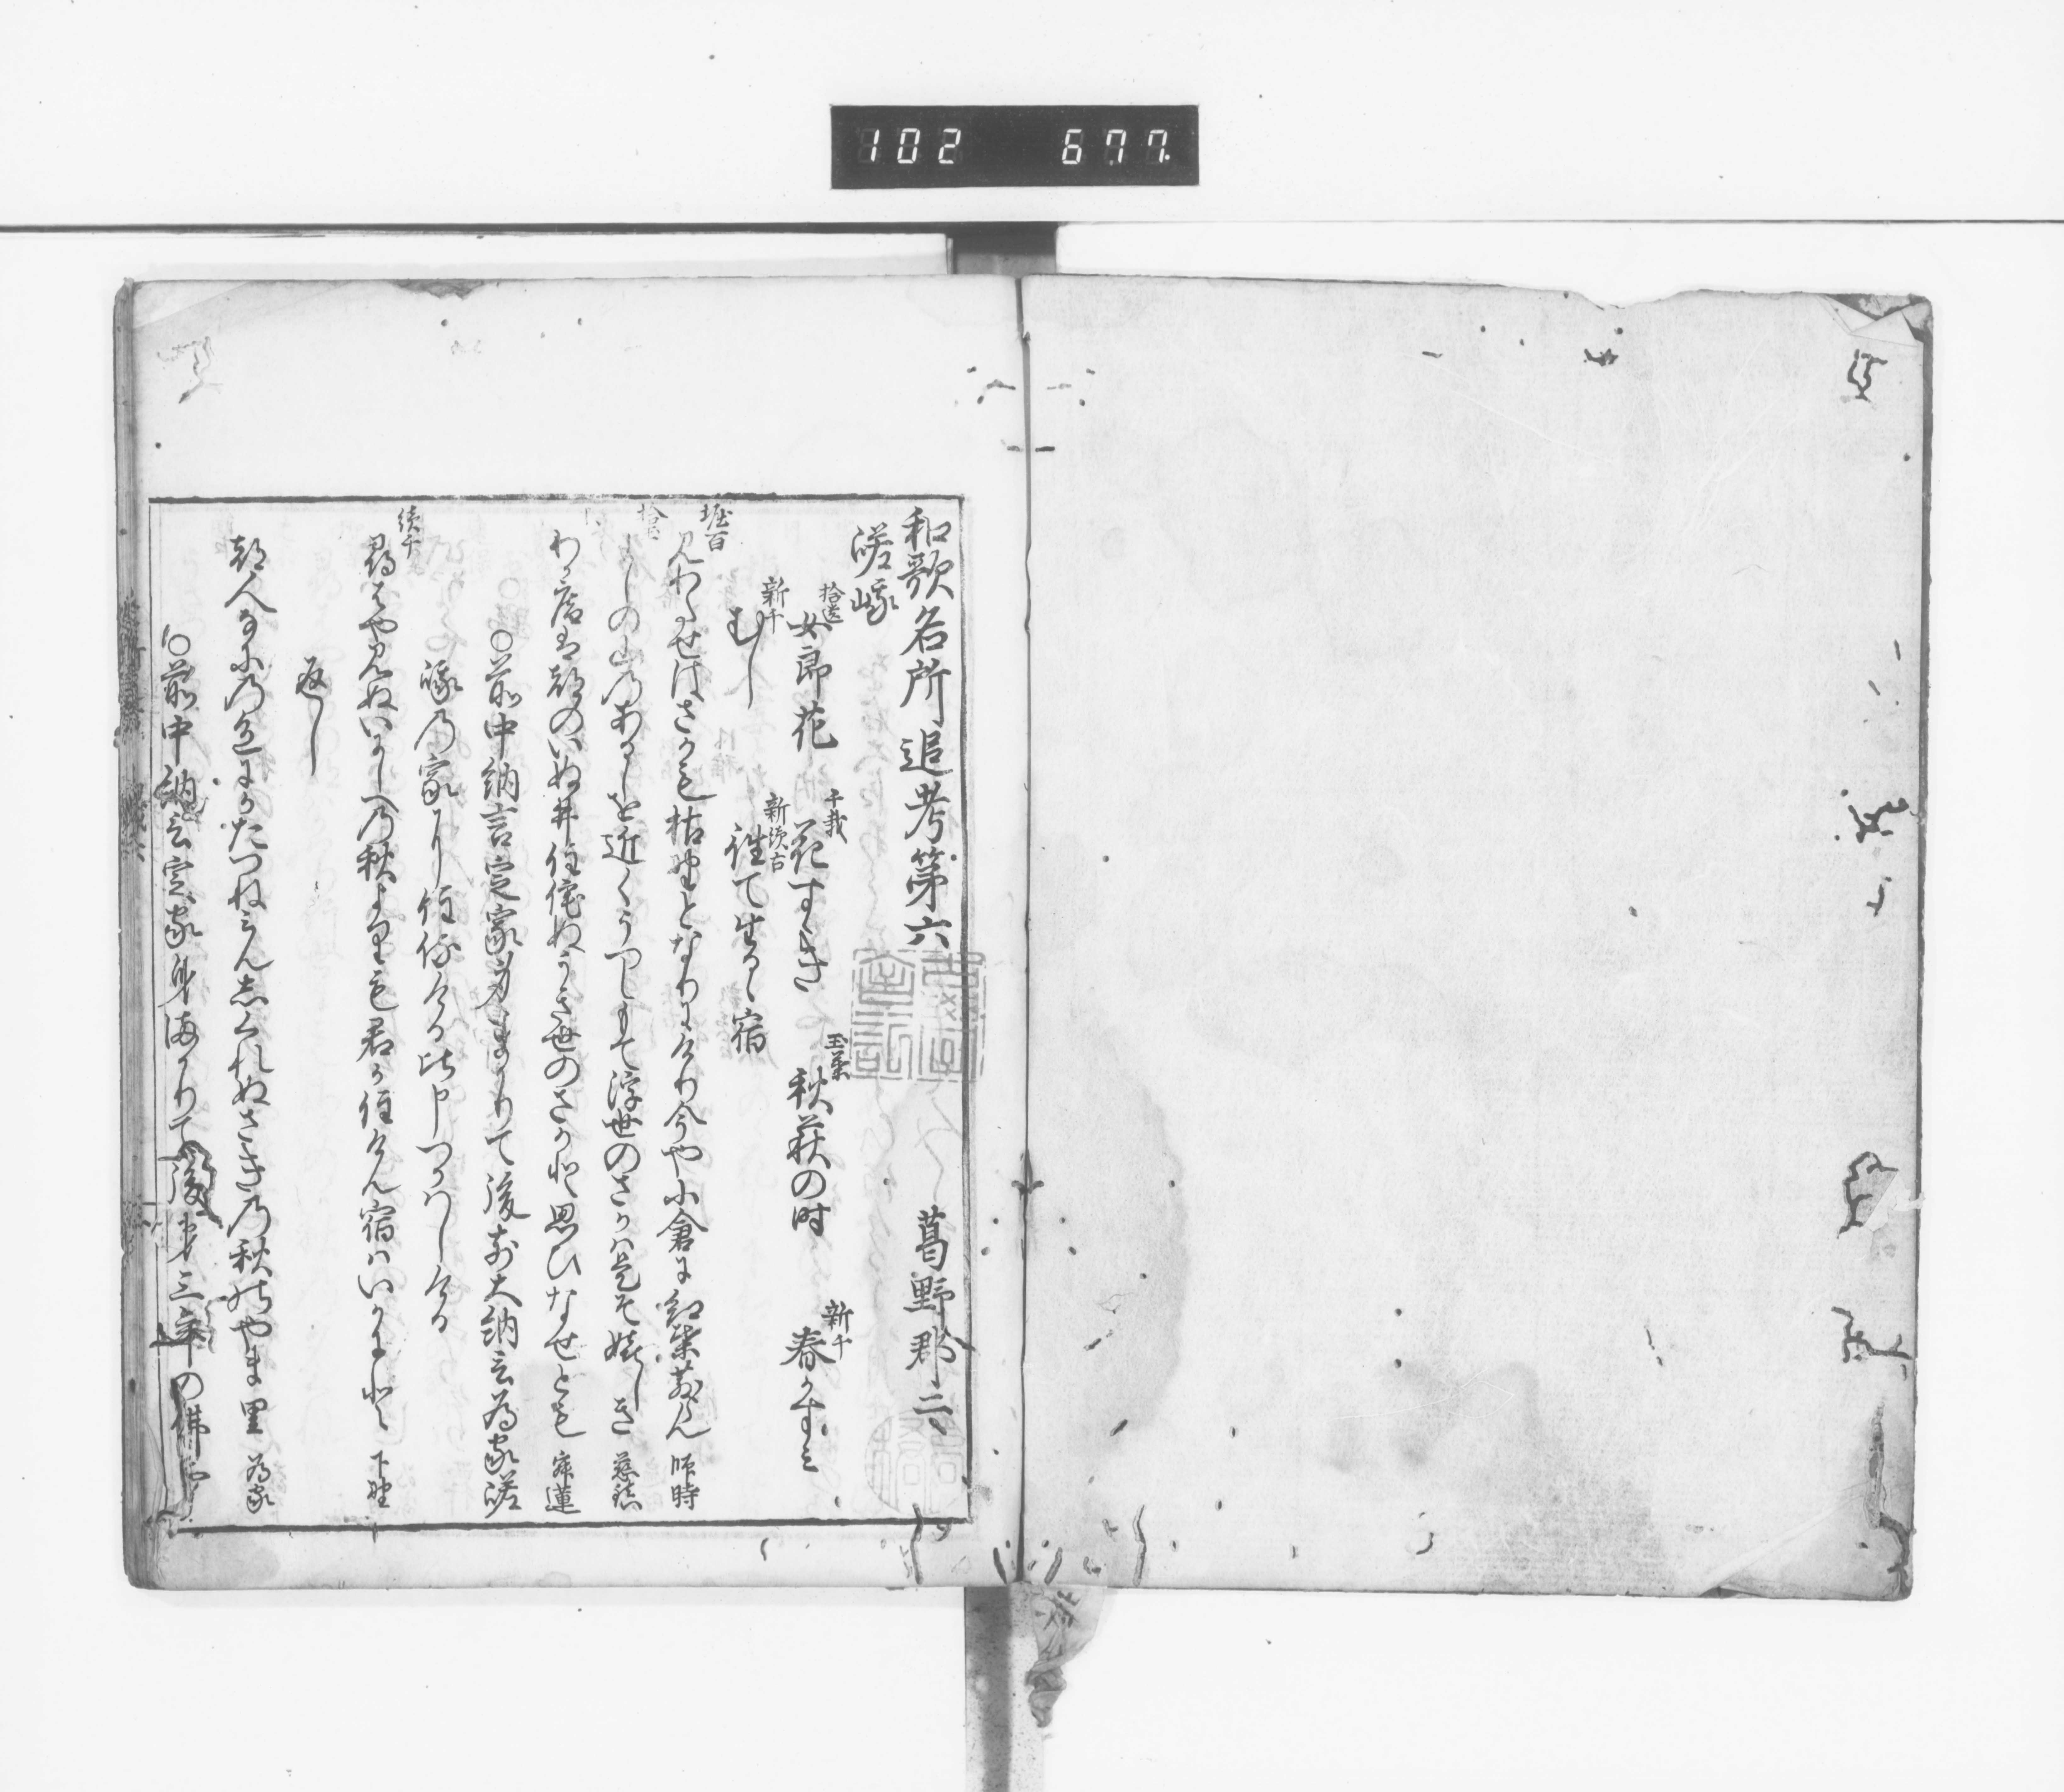 102 677
和歌名所追考第六 葛野郡二
嵯峨
拾遺 女郎花 千載 花すゝき 玉葉 秋萩の時 新千 春かすみ
新千 むし 新続古 往て出る 宿
堀百
見わたせはさかも枯野となりにけり今や小倉に紅葉散らん 師時
拾
よしの山のあらしを近くうつしもて浮世のさかは是そ嬉しき 慈鎮
わか庵は都のいぬ井住侘ぬうき世のさかと思ひなせとも 寂蓮
○前中納言定家身まかりて後前大納言為家嵯
峨の家に住侍ける比申つかはしける
続千
尋はや見ぬいにしへの秋よりも君か住けん宿はいかにと 下野
返し
都人なにの色にかたつねみんしくれぬさきの秋のやま里 為家
○前中納言定家身まかりて後第三年の佛事